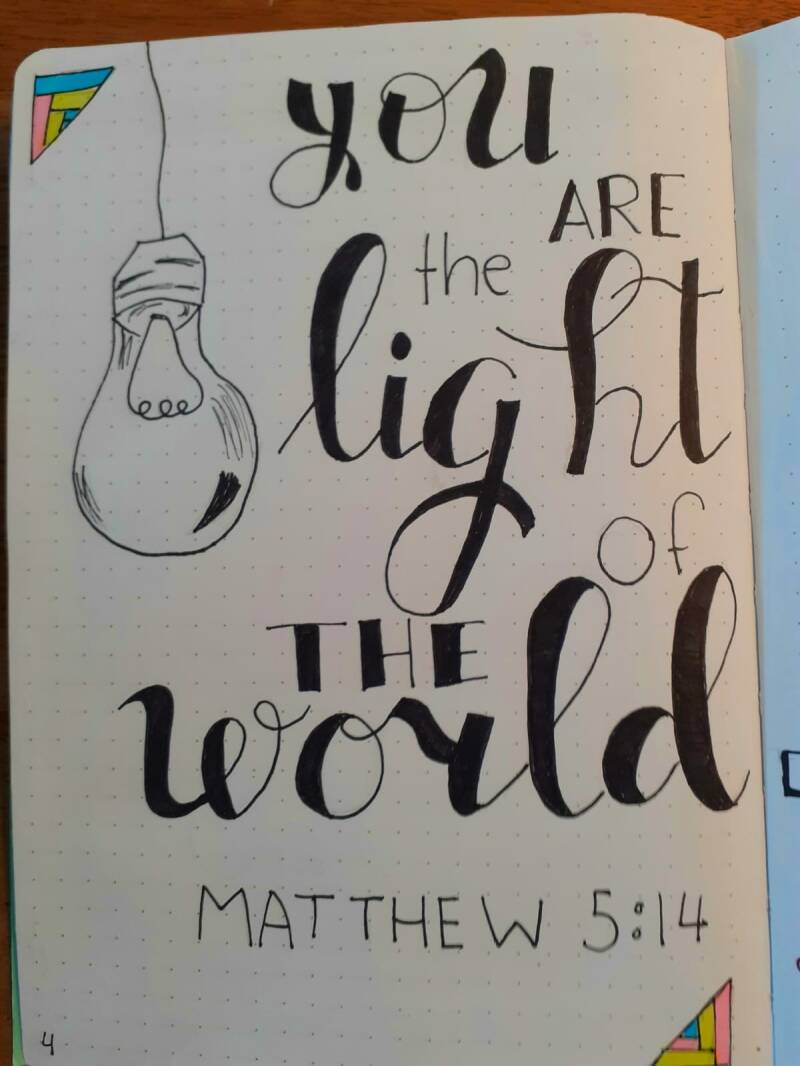 you
ARE
the
light
of
THE
world
MATTHEW 5:14
4